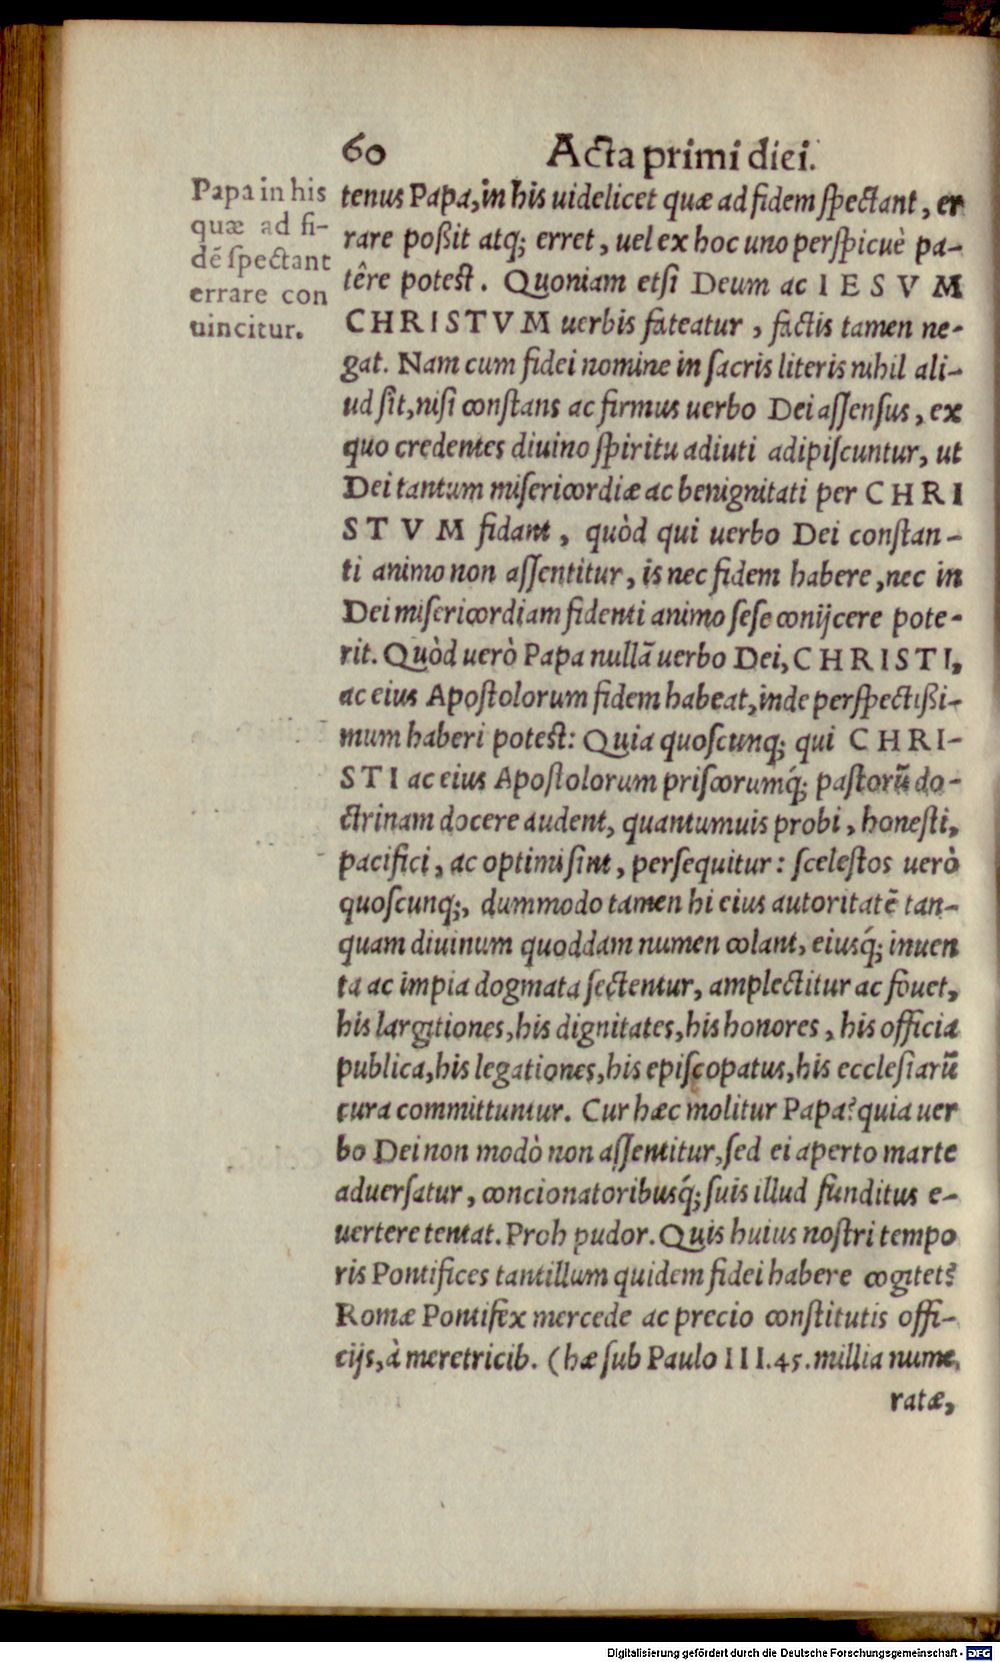 60 Acta primi diei.
Papa in his
quæ ad fi-
dẽ spectant
errare con
uincitur.
tenus Papa, in his uidelicet quæ ad fidem spectant, er
rare poßit atq; erret, uel ex hoc uno perspicuè pa-
têre potest. Quoniam etsi Deum ac IESVM
CHRISTVM uerbis fateatur, factis tamen ne-
gat. Nam cum fidei nomine in sacris literis nihil ali-
ud sit, nisi constans ac firmus uerbo Dei assensus, ex
quo credentes diuino spiritu adiuti adipiscuntur, ut
Dei tantum misericordiæ ac benignitati per CHRI
STVM fidant, quòd qui uerbo Dei constan-
ti animo non assentitur, is nec fidem habere, nec in
Dei misericordiam fidenti animo sese conijcere pote-
rit. Quòd uerò Papa nullã uerbo Dei, CHRISTI,
ac eius Apostolorum fidem habeat, inde perspectißi-
mum haberi potest: Quia quoscunq; qui CHRI-
STI ac eius Apostolorum priscorumq́; pastorũ do-
ctrinam docere audent, quantumuis probi, honesti,
pacifici, ac optimi sint, persequitur: scelestos uerò
quoscunq;, dummodo tamen hi eius autoritatẽ tan-
quam diuinum quoddam numen colant, eiusq́; inuen
ta ac impia dogmata sectentur, amplectitur ac fouet,
his largitiones, his dignitates, his honores, his officia
publica, his legationes, his episcopatus, his ecclesiarũ
cura committuntur. Cur hæc molitur Papa? quia uer
bo Dei non modò non assentitur, sed ei aperto marte
aduersatur, concionatoribusq́; suis illud funditus e-
uertere tentat. Proh pudor. Quis huius nostri tempo
ris Pontifices tantillum quidem fidei habere cogitet?
Romæ Pontifex mercede ac precio constitutis offi-
cijs, à meretricib. (hæ sub Paulo III. 45. millia nume
ratæ,
Digitalisierung gefördert durch die Deutsche Forschungsgemeinschaft - DFG